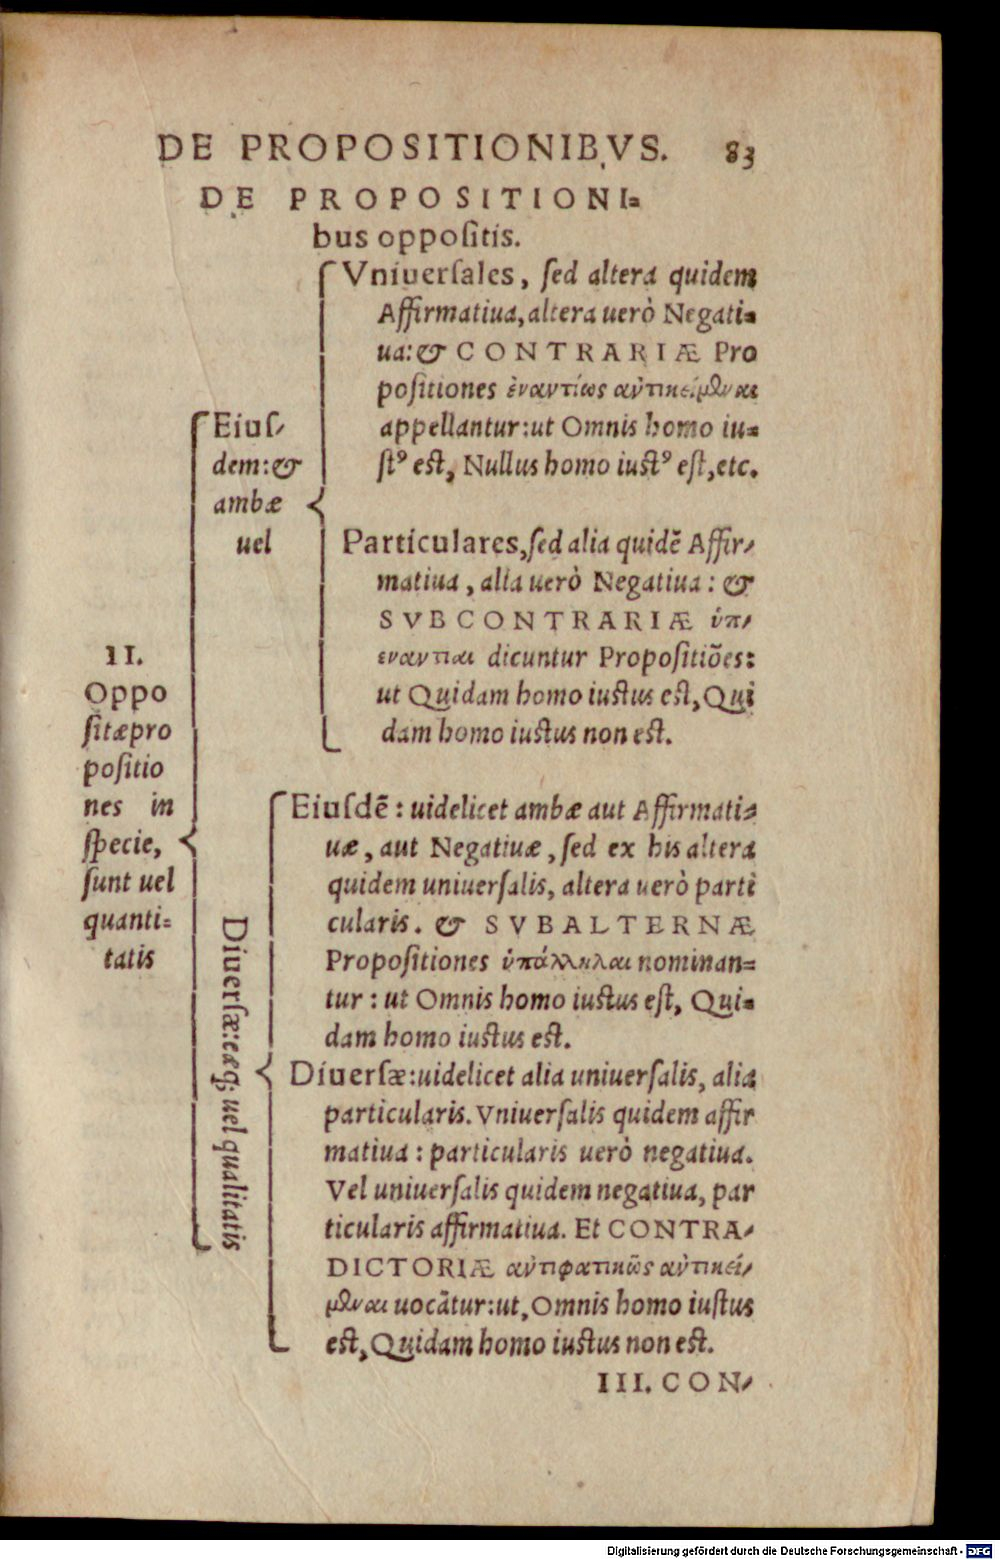 DE PROPOSITIONIBVS. 83
DE PROPOSITIONI=
bus oppositis.
II.
Oppo
sitæ pro
positio
nes in
specie,
sunt uel
quanti=
tatis
Eius/
dem: &
ambæ
uel
Vniuersales, sed altera quidem
Affirmatiua, altera uerò Negati=
ua: & CONTRARIÆ Pro
positiones ἐναντίως ἀντικείμεναι
appellantur: ut Omnis homo iu=
stꝰ est, Nullus homo iustꝰ est, etc.
Particulares, sed alia quidẽ Affir/
matiua, alia uerò Negatiua: &
SVBCONTRARIÆ ὑπ/
εναντίαι dicuntur Propositiões:
ut Quidam homo iustus est, Qui
dam homo iustus non est.
Diuersæ: eæq; uel qualitatis
Eiusdẽ: uidelicet ambæ aut Affirmati=
uæ, aut Negatiuæ, sed ex his altera
quidem uniuersalis, altera uerò parti
cularis. & SVBALTERNÆ
Propositiones ὑπάλληλαι nominan=
tur: ut Omnis homo iustus est, Qui=
dam homo iustus est.
Diuersæ: uidelicet alia uniuersalis, alia
particularis. Vniuersalis quidem affir
matiua: particularis uerò negatiua.
Vel uniuersalis quidem negatiua, par
ticularis affirmatiua. Et CONTRA/
DICTORIÆ ἀντιφατικῶς ἀντικεί/
μεναι uocãtur: ut, Omnis homo iustus
est, Quidam homo iustus non est.
III. CON/
Digitalisierung gefördert durch die Deutsche Forschungsgemeinschaft - DFG